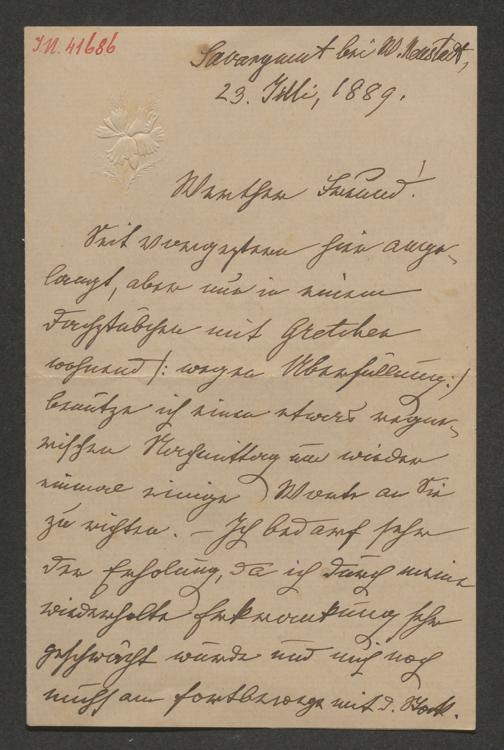 I.N. 41686
bei W. Neustadt,
23. Juli, 1889.
Werther Freund!
Seit vorgestern hier ange-
langt, aber nur in einem
Dachstübchen mit Gretchen
wohnend /: wegen Überfüllung :/
benütze ich einen etwas regne-
rischen Nachmittag um wieder
einmal einige Worte an Sie
zu richten. – Ich bedarf sehr
der Erholung, da ich durch meine
wiederholte Erkrankung sehr
geschwächt wurde und mich noch
fortbewege mit d.